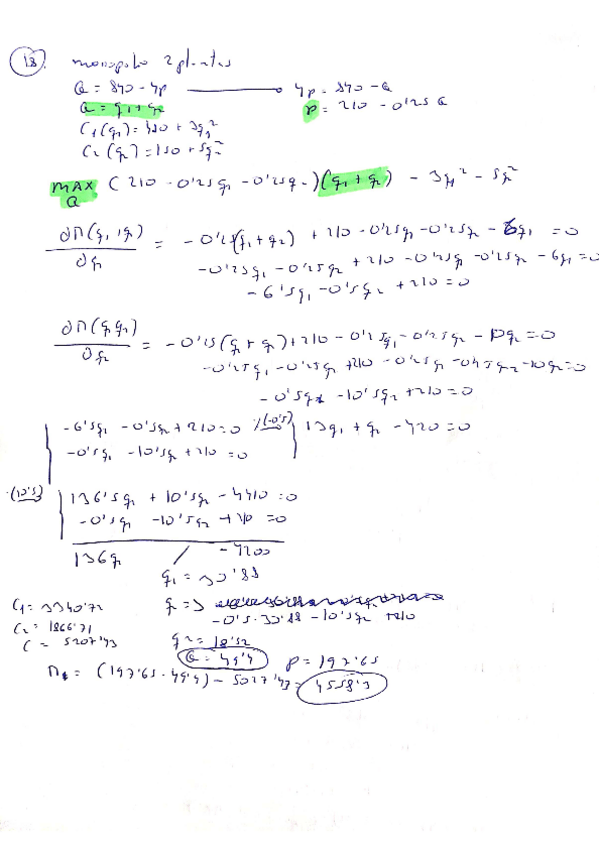 18. monopolio 2 plantas
Q = 840 - 4p → 4p = 840 - Q
Q = q1 + q2 p = 210 - 0'25 Q
C1(q1) = 480 + 3q1²
C2(q2) = 150 + 5q2²
MAX (210 - 0'25q1 - 0'25q2)(q1 + q2) - 3q1² - 5q2²
Q
∂Π(q1, q2) / ∂q1 = -0'25(q1+q2) + 210 - 0'25q1 - 0'25q2 - 6q1 = 0
-0'25q1 - 0'25q2 + 210 - 0'25q1 - 0'25q2 - 6q1 = 0
-6'5q1 - 0'5q2 + 210 = 0
∂Π(q1 q2) / ∂q2 = -0'25(q1+q2) + 210 - 0'25q1 - 0'25q2 - 10q2 = 0
-0'25q1 - 0'25q2 + 210 - 0'25q1 - 0'25q2 - 10q2 = 0
-0'5q1 - 10'5q2 + 210 = 0
-6'5q1 - 0'5q2 + 210 = 0 /(-0'5) 13q1 + q2 - 420 = 0
-0'5q1 - 10'5q2 + 210 = 0
·(10'5) 136'5q1 + 10'5q2 - 4410 = 0
-0'5q1 - 10'5q2 + 210 = 0
136q1 / - 4200
q1 = 30'88
C1 = 3340'72 q2 =>
-0'5·30'88 - 10'5q2 + 210
C2 = 1866'71
C = 5207'43 q2 = 18'52
Q = 49'4 p = 197'65
Π = (197'65 · 49'4) - 5027'43 = 4558'3